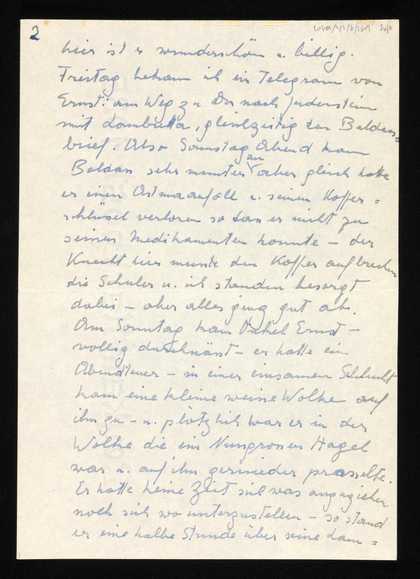 2
hier ist es wunderschön u. billig.
Freitag bekam ich ein Telegram von
Ernst: am Weg zu Dir nach
mit Lambretta, gleichzeitig den Baldass
brief. Also Samstag Abend kam
Baldass sehr munter an aber gleich hatte
er einen Astmaanfall u. seinen Koffer-
schlüssel verloren so dass er nicht zu
seinen Medikamenten konnte – der
Knecht hier musste den Koffer aufbrechen
die Schuler u. ich standen besorgt
dabei – aber alles ging gut ab.
Am Sonntag kam Onkel Ernst –
völlig durchnässt – er hatte ein
Abendteuer – in einer einsamen Schlucht
kam eine kleine weisse Wolke auf
ihn zu – u. plötzlich war er in der
Wolke die ein Hagel
war u. auf ihn prasselte.
Er hatte keine Zeit sich was anzuziehen
noch sich wo unterzustellen – so stand
er eine halbe Stunde über seine Lam=